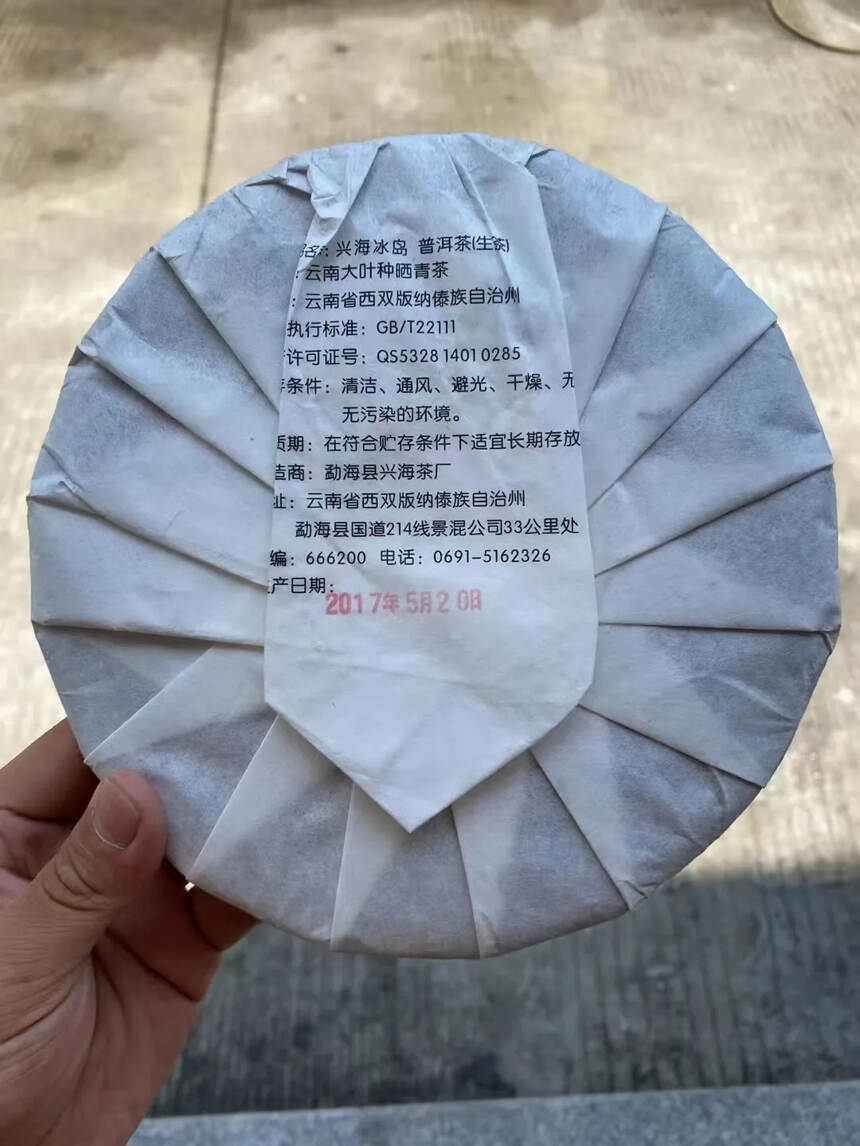 兴海冰岛 普洱茶(生茶)
:云南大叶种晒青茶
:云南省西双版纳傣族自治州
执行标准:GB/T22111
许可证号:QS5328 1401 0285
条件:清洁、通风、避光、干燥、无
无污染的环境。
质期:在符合贮存条件下适宜长期存放
造商:勐海县兴海茶厂
址:云南省西双版纳傣族自治州
勐海县国道214线景混公司33公里处
编:666200 电话:0691-5162326
产日期:
2017年5月20日